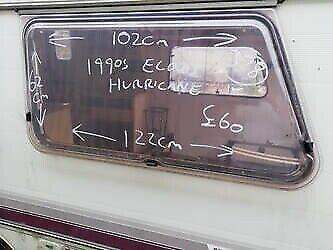 102cm
1990s ECCLES
HURRICANE
62cm
£60
122cm